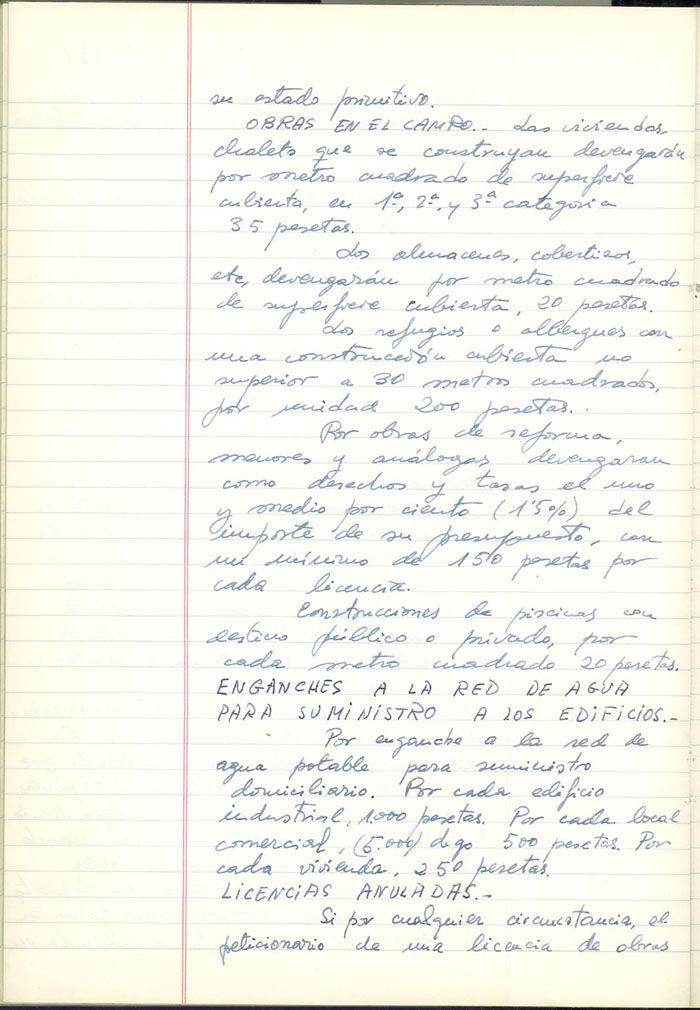 su estado primitivo.
OBRAS EN EL CAMPO.- Las viviendas,
chalets que se construyan devengarán
por metro cuadrado de superficie
cubierta, en 1ª, 2ª, y 3ª categoria
35 pesetas.
Los almacenes, cobertizos,
etc, devengarán por metro cuadrado
de superficie cubierta, 20 pesetas.
Los refugios o albergues con
una construcción cubierta no
superior a 30 metros cuadrados,
por unidad 200 pesetas..
Por obras de reforma,
menores y análogas devengaran
como derechos y tasas el uno
y medio por ciento (1'5%) del
importe de su presupuesto, con
un mínimo de 150 pesetas por
cada licencia.
Construcciones de piscinas con
destino público o privado, por
cada metro cuadrado 20 pesetas.
ENGANCHES A LA RED DE AGUA
PARA SUMINISTRO A LOS EDIFICIOS.-
Por enganche a la red de
agua potable para suministro
domiciliario. Por cada edificio
industrial, 1000 pesetas. Por cada local
comercial, (5.000) digo 500 pesetas. Por
cada vivienda, 250 pesetas.
LICENCIAS ANULADAS.-
Si por cualquier circunstancia, el
peticionario de una licencia de obras